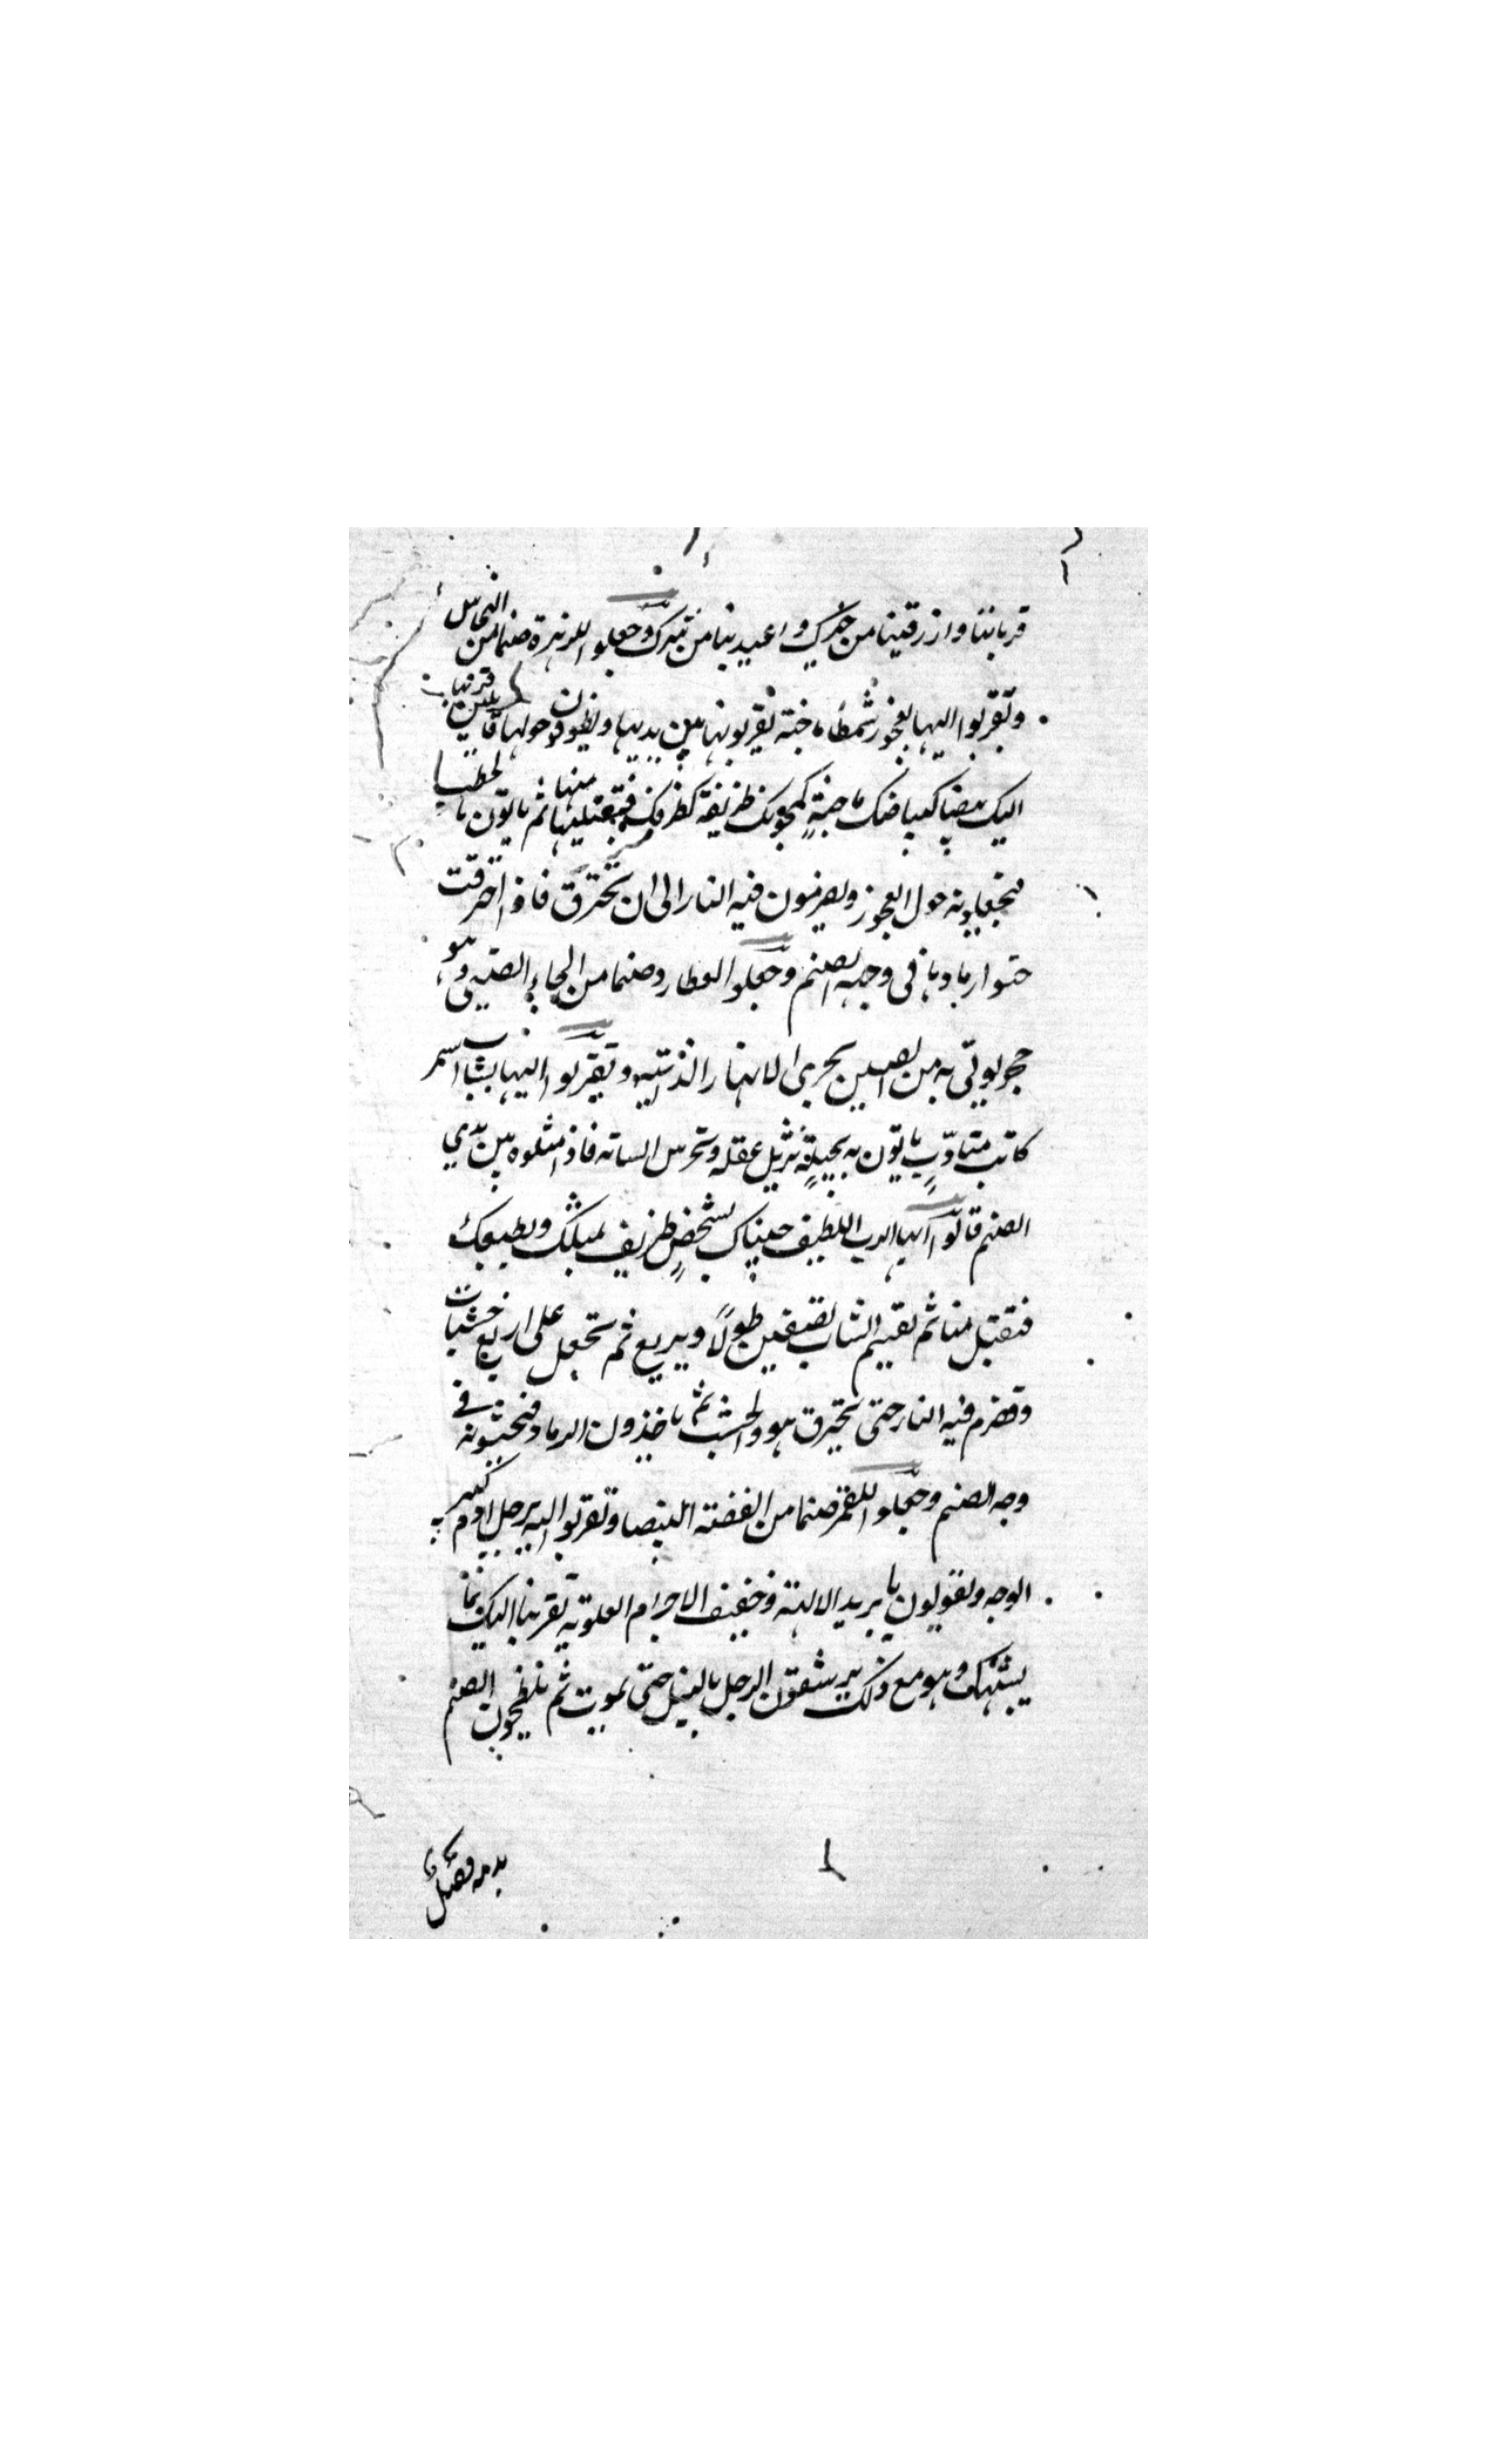 قرباننا وارزقينا من خيرك واعيدينا من شرك وجعلوا للزهرة صنما من النحاس
وتقربوا اليها بعجوز شمطاء ماجنة يقربونها بين يديها ويطوفون حولها قايلين قربنا
اليك بيضا كبياضك ماجنة كمجونك ظريفة كظرفك فتقبليها منا ثم ياتون بالحطب
فيجعلونه حول العجوز ويضرمون فيه النار الى ان تحترق فاذا احترقت
حثوا رمادها في وجه الصنم وجعلوا العطارد صنما من الصيني وهو
حجر يوتى به من الصين بحرى الانهار وتقربوا اليها بشاب اسمر
كاتب متادب ياتون به بحيلة تزيل عقله وتخرس لسانه فاذا مثلوه بين يدي
الصنم قالوا ايها الرب اللطيف جيناك بشخص ظريف لميلك ولطبعك
فتقبل منا ثم يقسم الشاب نصفين طولا ويربع ثم تجعل على اربع خشبات
وتضرم فيه النار حتى يحترق هو والخشب ثم ياخذون الرماد فيحثونه في
وجه الصنم وجعلوا للقمر صنما من الفضة البيضا وتقربوا اليه برجل ادم كبير
الوجه ويقولون يا بريد الالهة وخفيف الاجرام العلوية تقربنا اليك بما
يشبهك وهو مع ذلك يرشقون الرجل بالنبل حتى يموت ثم يلطخون الصنم
بدمه